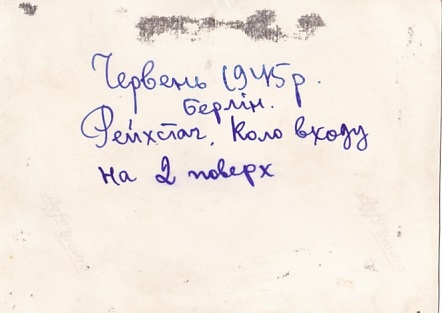 Червень 1945 р.
Берлін.
Рейхстаг, коло входу
на 2 поверх